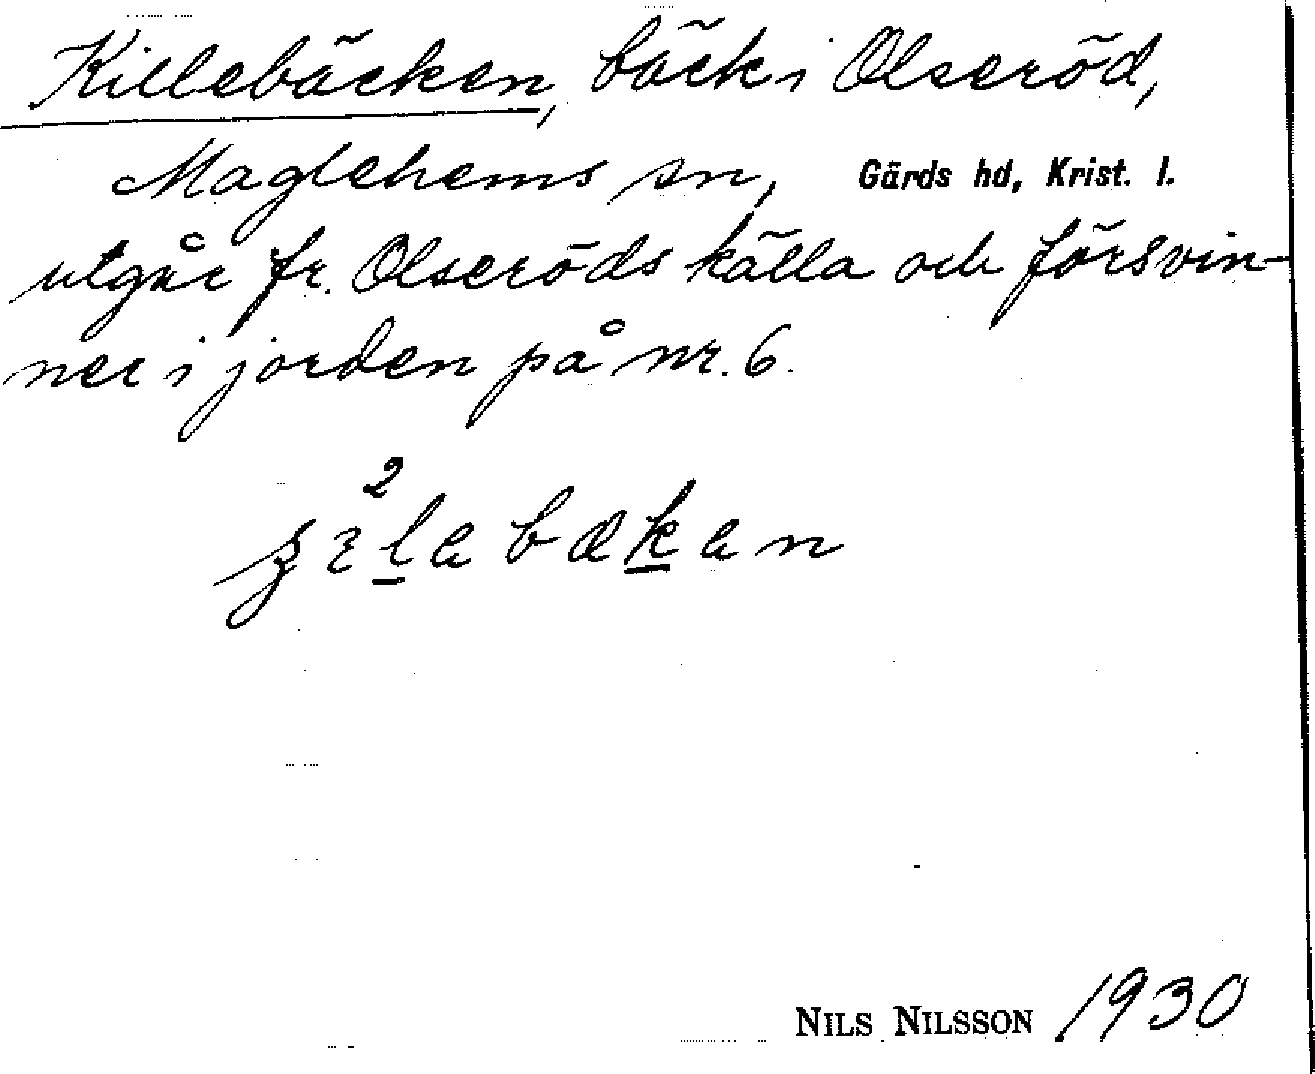 Killebäcken, bäck i Olseröd,
Maglehems sn, Gärds hd, Krist. l.
utgår fr. Olseröds källa och försvin-
ner i jorden på nr. 6.
2
Nils Nilsson 1930